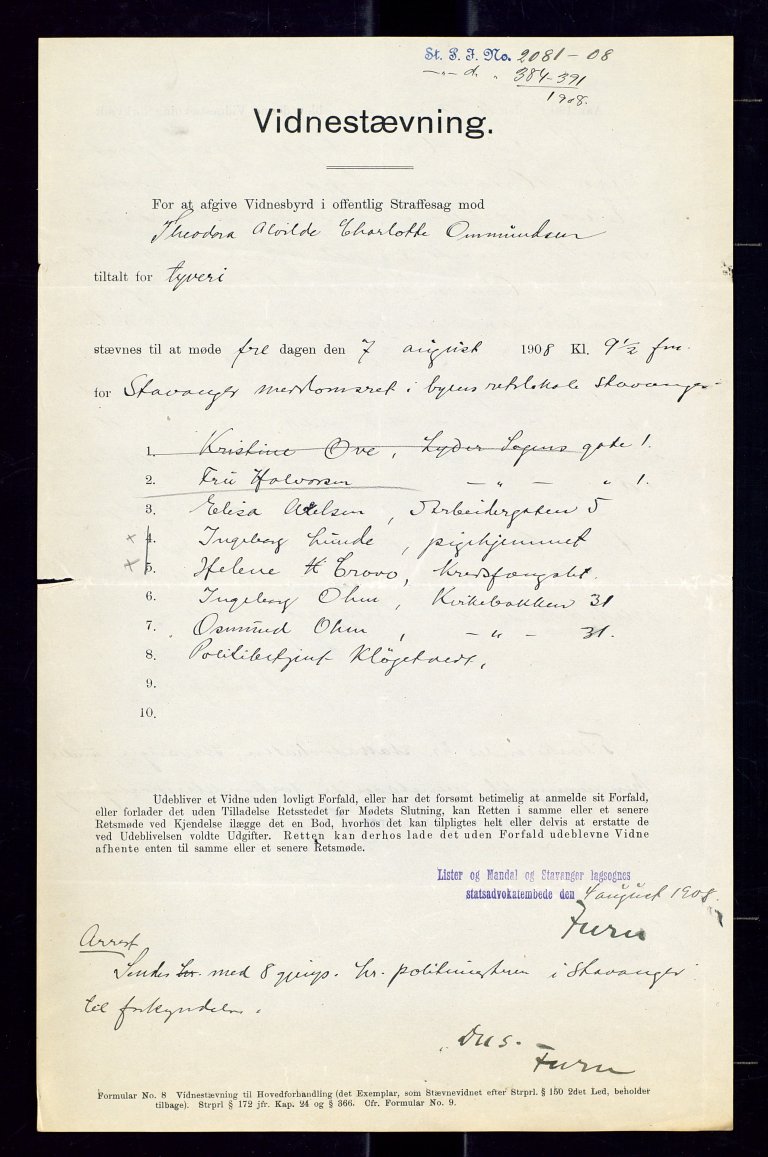 St. P. J. No. 2081 - 08
— " — d. " 384-391
1908.
Vidnestævning.
For at afgive Vidnesbyrd i offentlig Straffesag mod
Theodora Alvilde Charlotte Ommundsen
tiltalt for tyveri
stævnes til at møde fre dagen den 7 august 1908 Kl. 9 1/2 fm.
for Stavanger meddomsret i byens retslokale Stavanger
1. Kristine Ove, Lyder Sagens gade 1.
2. Fru Halvorsen — " — " 1.
3. Elisa Axelsen, Arbeidergaten 5
4. Ingeborg Lunde, pigehjemmet
5. Helene H Trovo, Kredsfængslet.
6. Ingeborg Ohm, Kirkebakken 31
7. Osmund Ohm, — " — 31.
8. Politibetjent Kløgetvedt.
9.
10.
Udebliver et Vidne uden lovligt Forfald, eller har det forsømt betimelig at anmelde sit Forfald,
eller forlader det uden Tilladelse Retsstedet før Mødets Slutning, kan Retten i samme eller et senere
Retsmøde ved Kjendelse ilægge det en Bod, hvorhos det kan tilpligtes helt eller delvis at erstatte de
ved Udeblivelsen voldte Udgifter. Retten kan derhos lade det uden Forfald udeblevne Vidne
afhente enten til samme eller et senere Retsmøde.
Lister og Mandal og Stavanger lagsognes
statsadvokatembede den 4 august 1908.
Furu
Arrest
Sendes hr. med 8 gjenp. hr. politimesteren i Stavanger
til forkyndelse.
D u s.
Furu
Formular No. 8 Vidnestævning til Hovedforhandling (det Exemplar, som Stævnevidnet efter Strprl. § 150 2det Led, beholder
tilbage). Strprl § 172 jfr. Kap. 24 og § 366. Cfr. Formular No. 9.